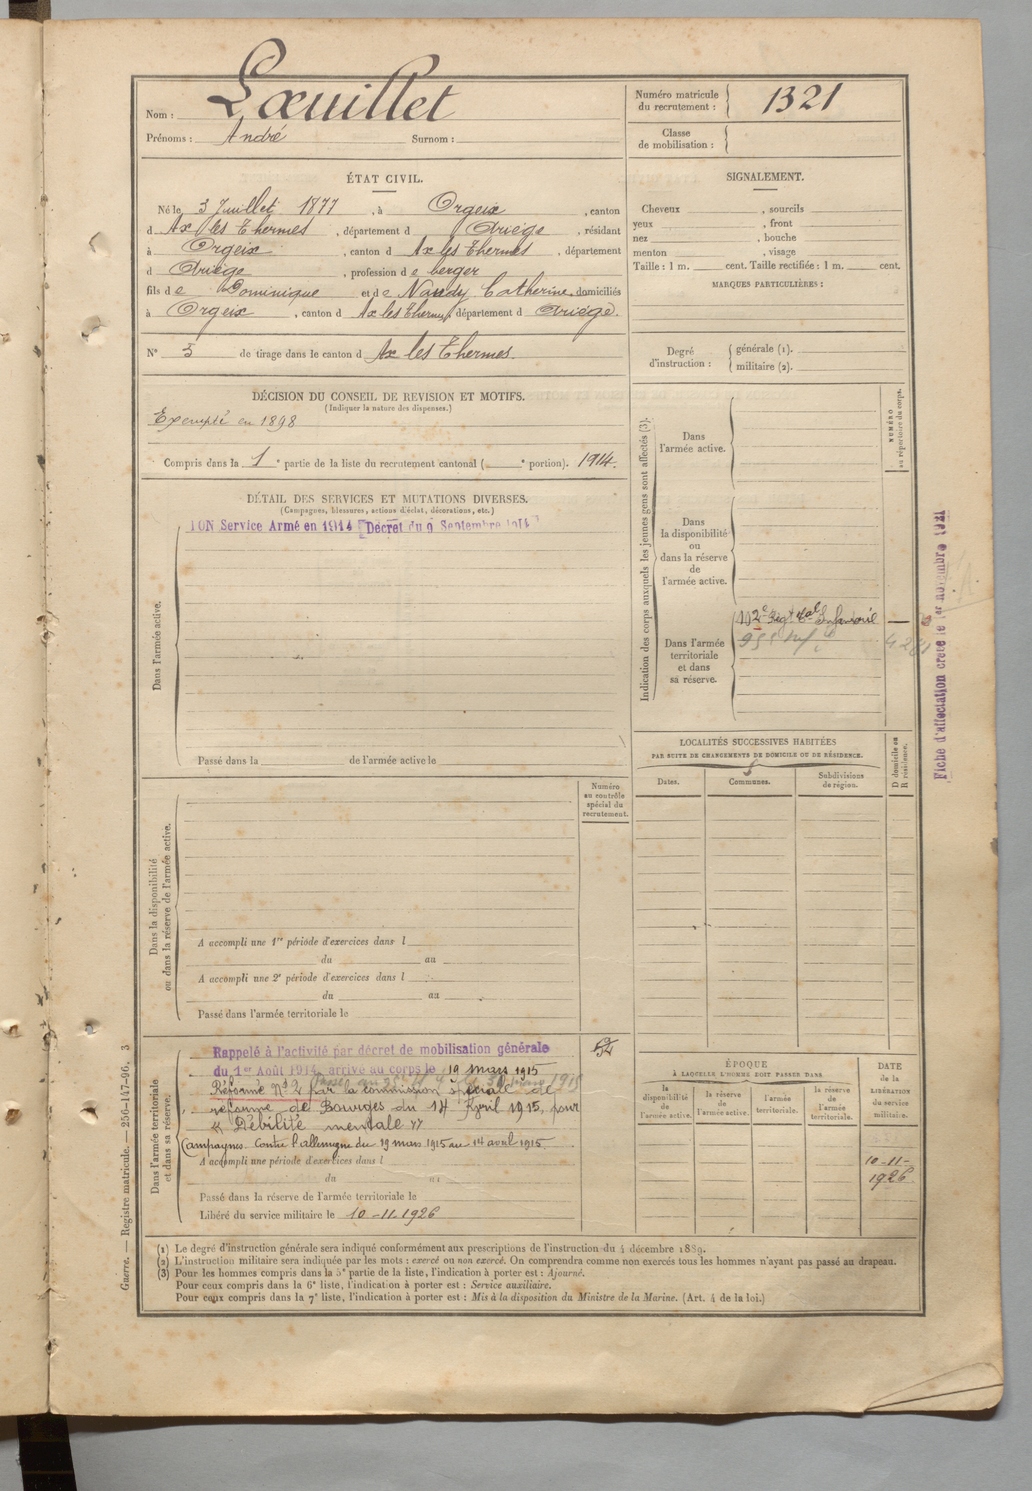 Nom : Lœuillet
Prénoms : André Surnom :
Numéro matricule du recrutement : 1321
Classe de mobilisation :
ÉTAT CIVIL.
Né le 3 Juillet 1877, à Orgeix, canton
d Ax les Thermes, département d Ariège, résidant
à Orgeix, canton d Ax les Thermes, département
d Ariège, profession de berger
fils de Dominique et de Naudy Catherine, domiciliés
à Orgeix, canton d Ax les Thermes, département d Ariège.
N° 3 de tirage dans le canton d Ax les Thermes.
SIGNALEMENT.
Cheveux , sourcils
yeux , front
nez , bouche
menton , visage
Taille : 1 m. cent. Taille rectifiée : 1 m. cent.
MARQUES PARTICULIÈRES :
Degré d'instruction : générale (1).
militaire (2).
DÉCISION DU CONSEIL DE REVISION ET MOTIFS.
(Indiquer la nature des dispenses.)
Exempté en 1898
Compris dans la 1e partie de la liste du recrutement cantonal ( e portion). 1914.
DÉTAIL DES SERVICES ET MUTATIONS DIVERSES.
(Campagnes, blessures, actions d'éclat, décorations, etc.)
ION Service Armé en 1914 [Décret du 9 Septembre 1914]
Dans l'armée active.
Passé dans la de l'armée active le
Indication des corps auxquels les jeunes gens sont affectés (3).
NUMÉRO au répertoire du corps.
Dans l'armée active.
Dans la disponibilité ou dans la réserve de l'armée active.
Dans l'armée territoriale et dans sa réserve.
Régt tal Infanterie
Fiche d'affectation créée le 1er novembre 1921
LOCALITÉS SUCCESSIVES HABITÉES
PAR SUITE DE CHANGEMENTS DE DOMICILE OU DE RÉSIDENCE.
D domicile ou R résidence.
Dates. Communes. Subdivisions de région.
Numéro au contrôle spécial du recrutement.
Dans la disponibilité ou dans la réserve de l'armée active.
A accompli une 1re période d'exercices dans l
du au
A accompli une 2e période d'exercices dans l
du au
Passé dans l'armée territoriale le
Dans l'armée territoriale et dans sa réserve.
Rappelé à l'activité par décret de mobilisation générale
du 1er Août 1914, arrivé au corps le 19 mars 1915
Réformé N° 2 par la commission spéciale de
réforme de Bourges du 14 Avril 1915, pour
"Débilité mentale"
Campagnes Contre l'allemagne du 19 mars 1915 au 14 avril 1915.
A accompli une période d'exercices dans l
du au
Passé dans la réserve de l'armée territoriale le
Libéré du service militaire le 10-11-1926
ÉPOQUE
À LAQUELLE L'HOMME DOIT PASSER DANS
la disponibilité de l'armée active.
la réserve de l'armée active.
l'armée territoriale.
la réserve de l'armée territoriale.
DATE de la LIBÉRATION du service militaire.
10-11-
1926
(1) Le degré d'instruction générale sera indiqué conformément aux prescriptions de l'instruction du 4 décembre 1889.
(2) L'instruction militaire sera indiquée par les mots : exercé ou non exercé. On comprendra comme non exercés tous les hommes n'ayant pas passé au drapeau.
(3) Pour les hommes compris dans la 5e partie de la liste, l'indication à porter est : Ajourné.
Pour ceux compris dans la 6e liste, l'indication à porter est : Service auxiliaire.
Pour ceux compris dans la 7e liste, l'indication à porter est : Mis à la disposition du Ministre de la Marine. (Art. 4 de la loi.)
Guerre. — Registre matricule. — 256-147-96. 3